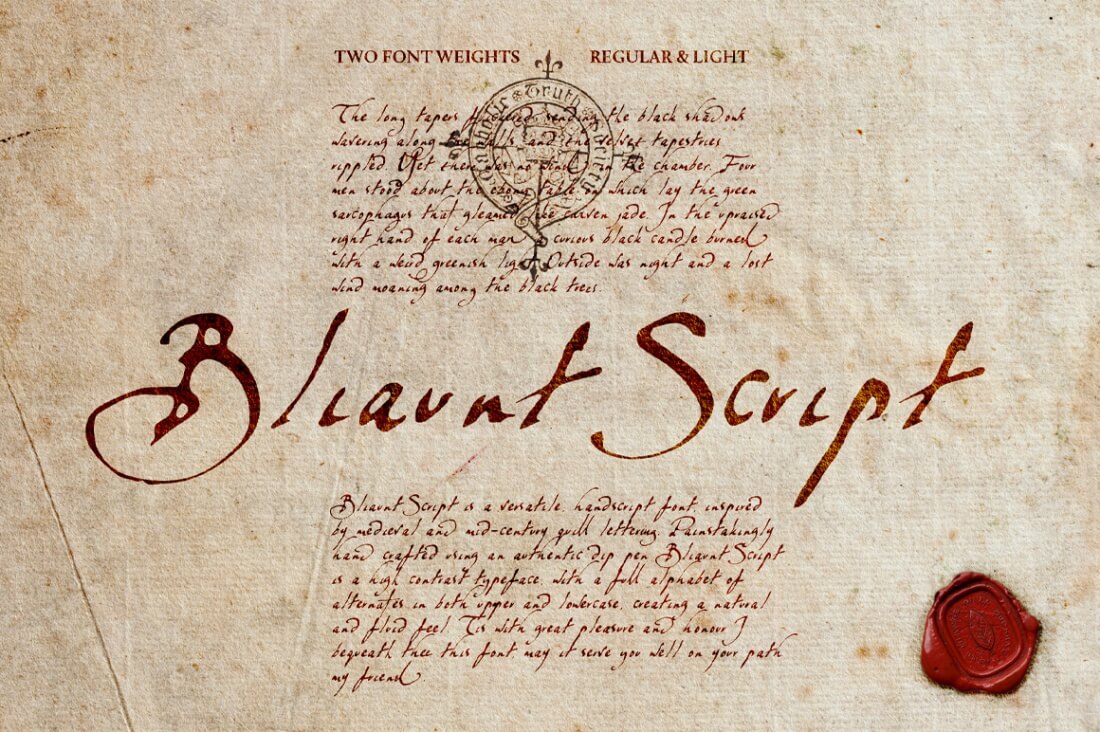 TWO FONT WEIGHTS REGULAR & LIGHT
Catholic Truth Society
The long tapers flickered, sending the black shadows
wavering along the walls, and the velvet tapestries
rippled. Yet there was no wind in the chamber. Four
men stood about the ebony table on which lay the green
sarcophagus that gleamed like carven jade. In the upraised
right hand of each man a curious black candle burned
with a weird greenish light. Outside was night and a lost
wind moaning among the black trees.
Bliaunt Script
Bliaunt Script is a versatile, handscript font, inspired
by medieval and mid-century quill lettering. Painstakingly
hand crafted using an authentic dip pen Bliaunt Script
is a high contrast typeface, with a full alphabet of
alternates in both upper and lowercase, creating a natural
and fluid feel. Tis with great pleasure and honour I
bequeath thee this font may it serve you well on your path
my friend